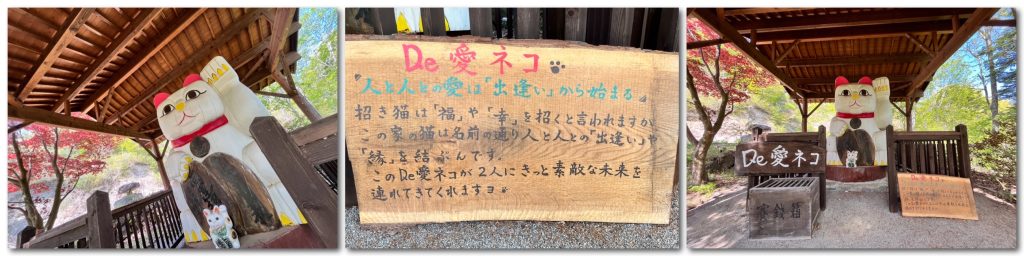 De愛ネコ
"人と人との愛は「出逢い」から始まる"
招き猫は「福」や「幸」を招くと言われますが
この家の猫は名前の通り人と人との「出逢い」や
「縁」を結ぶんです。
このDe愛ネコが2人にきっと素敵な未来を
連れてきてくれますヨ
De愛ネコ
賽銭箱